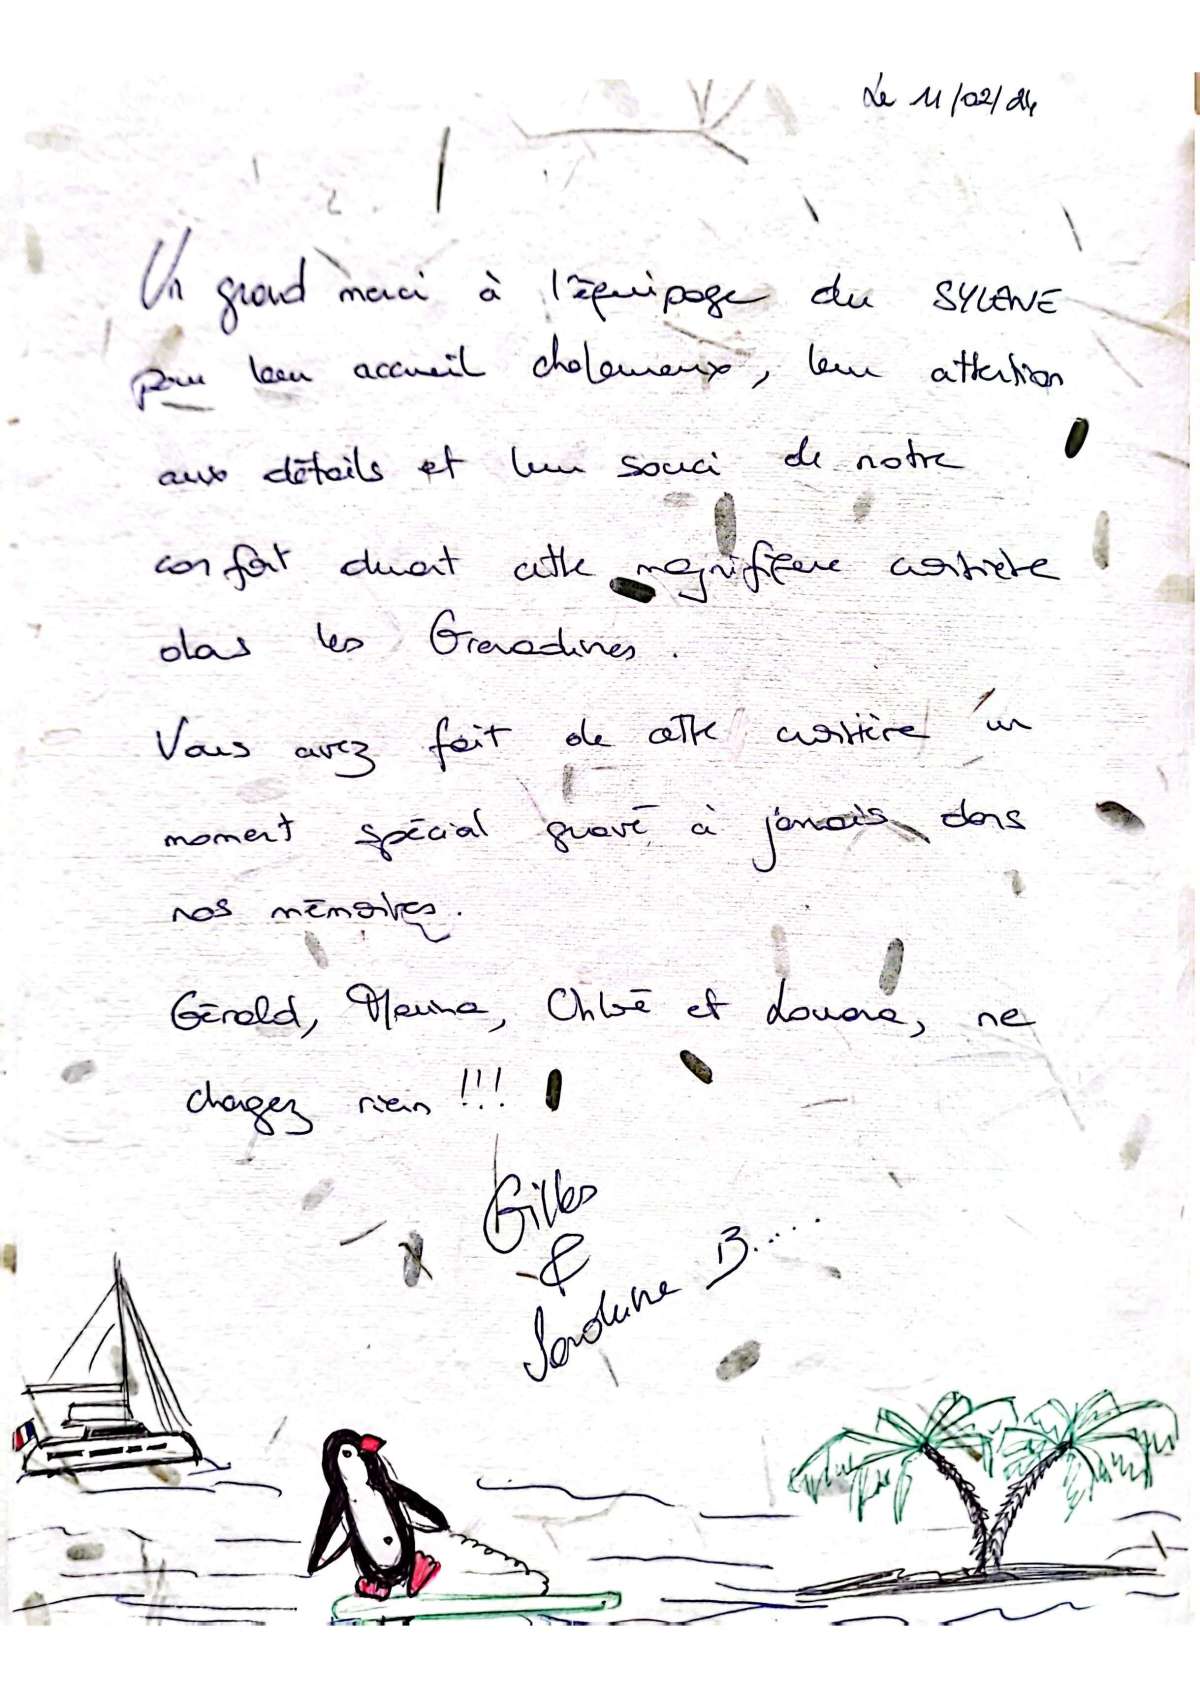 Le 11/02/24
Un grand merci à l'équipage du SYLENE
pour leur accueil chaleureux, leur attention
aux détails et leur souci de notre
confort durant cette magnifique croisière
dans les Grenadines.
Vous avez fait de cette croisière un
moment spécial gravé à jamais dans
nos mémoires.
Gérald, Marina, Chloé et Louane, ne
changez rien !!!
Gilles
&
B.....